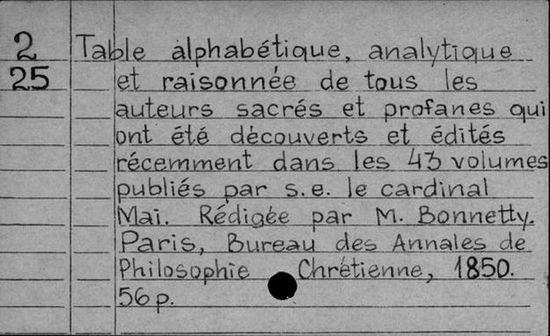 2 Table alphabétique, analytique
25 et raisonnée de tous les
auteurs sacrés et profanes qui
ont été découverts et édités
récemment dans les 43 volumes
publiés par s.e. le cardinal
Mai. Rédigée par M. Bonnetty.
Paris, Bureau des Annales de
Philosophie Chrétienne, 1850.
56 p.